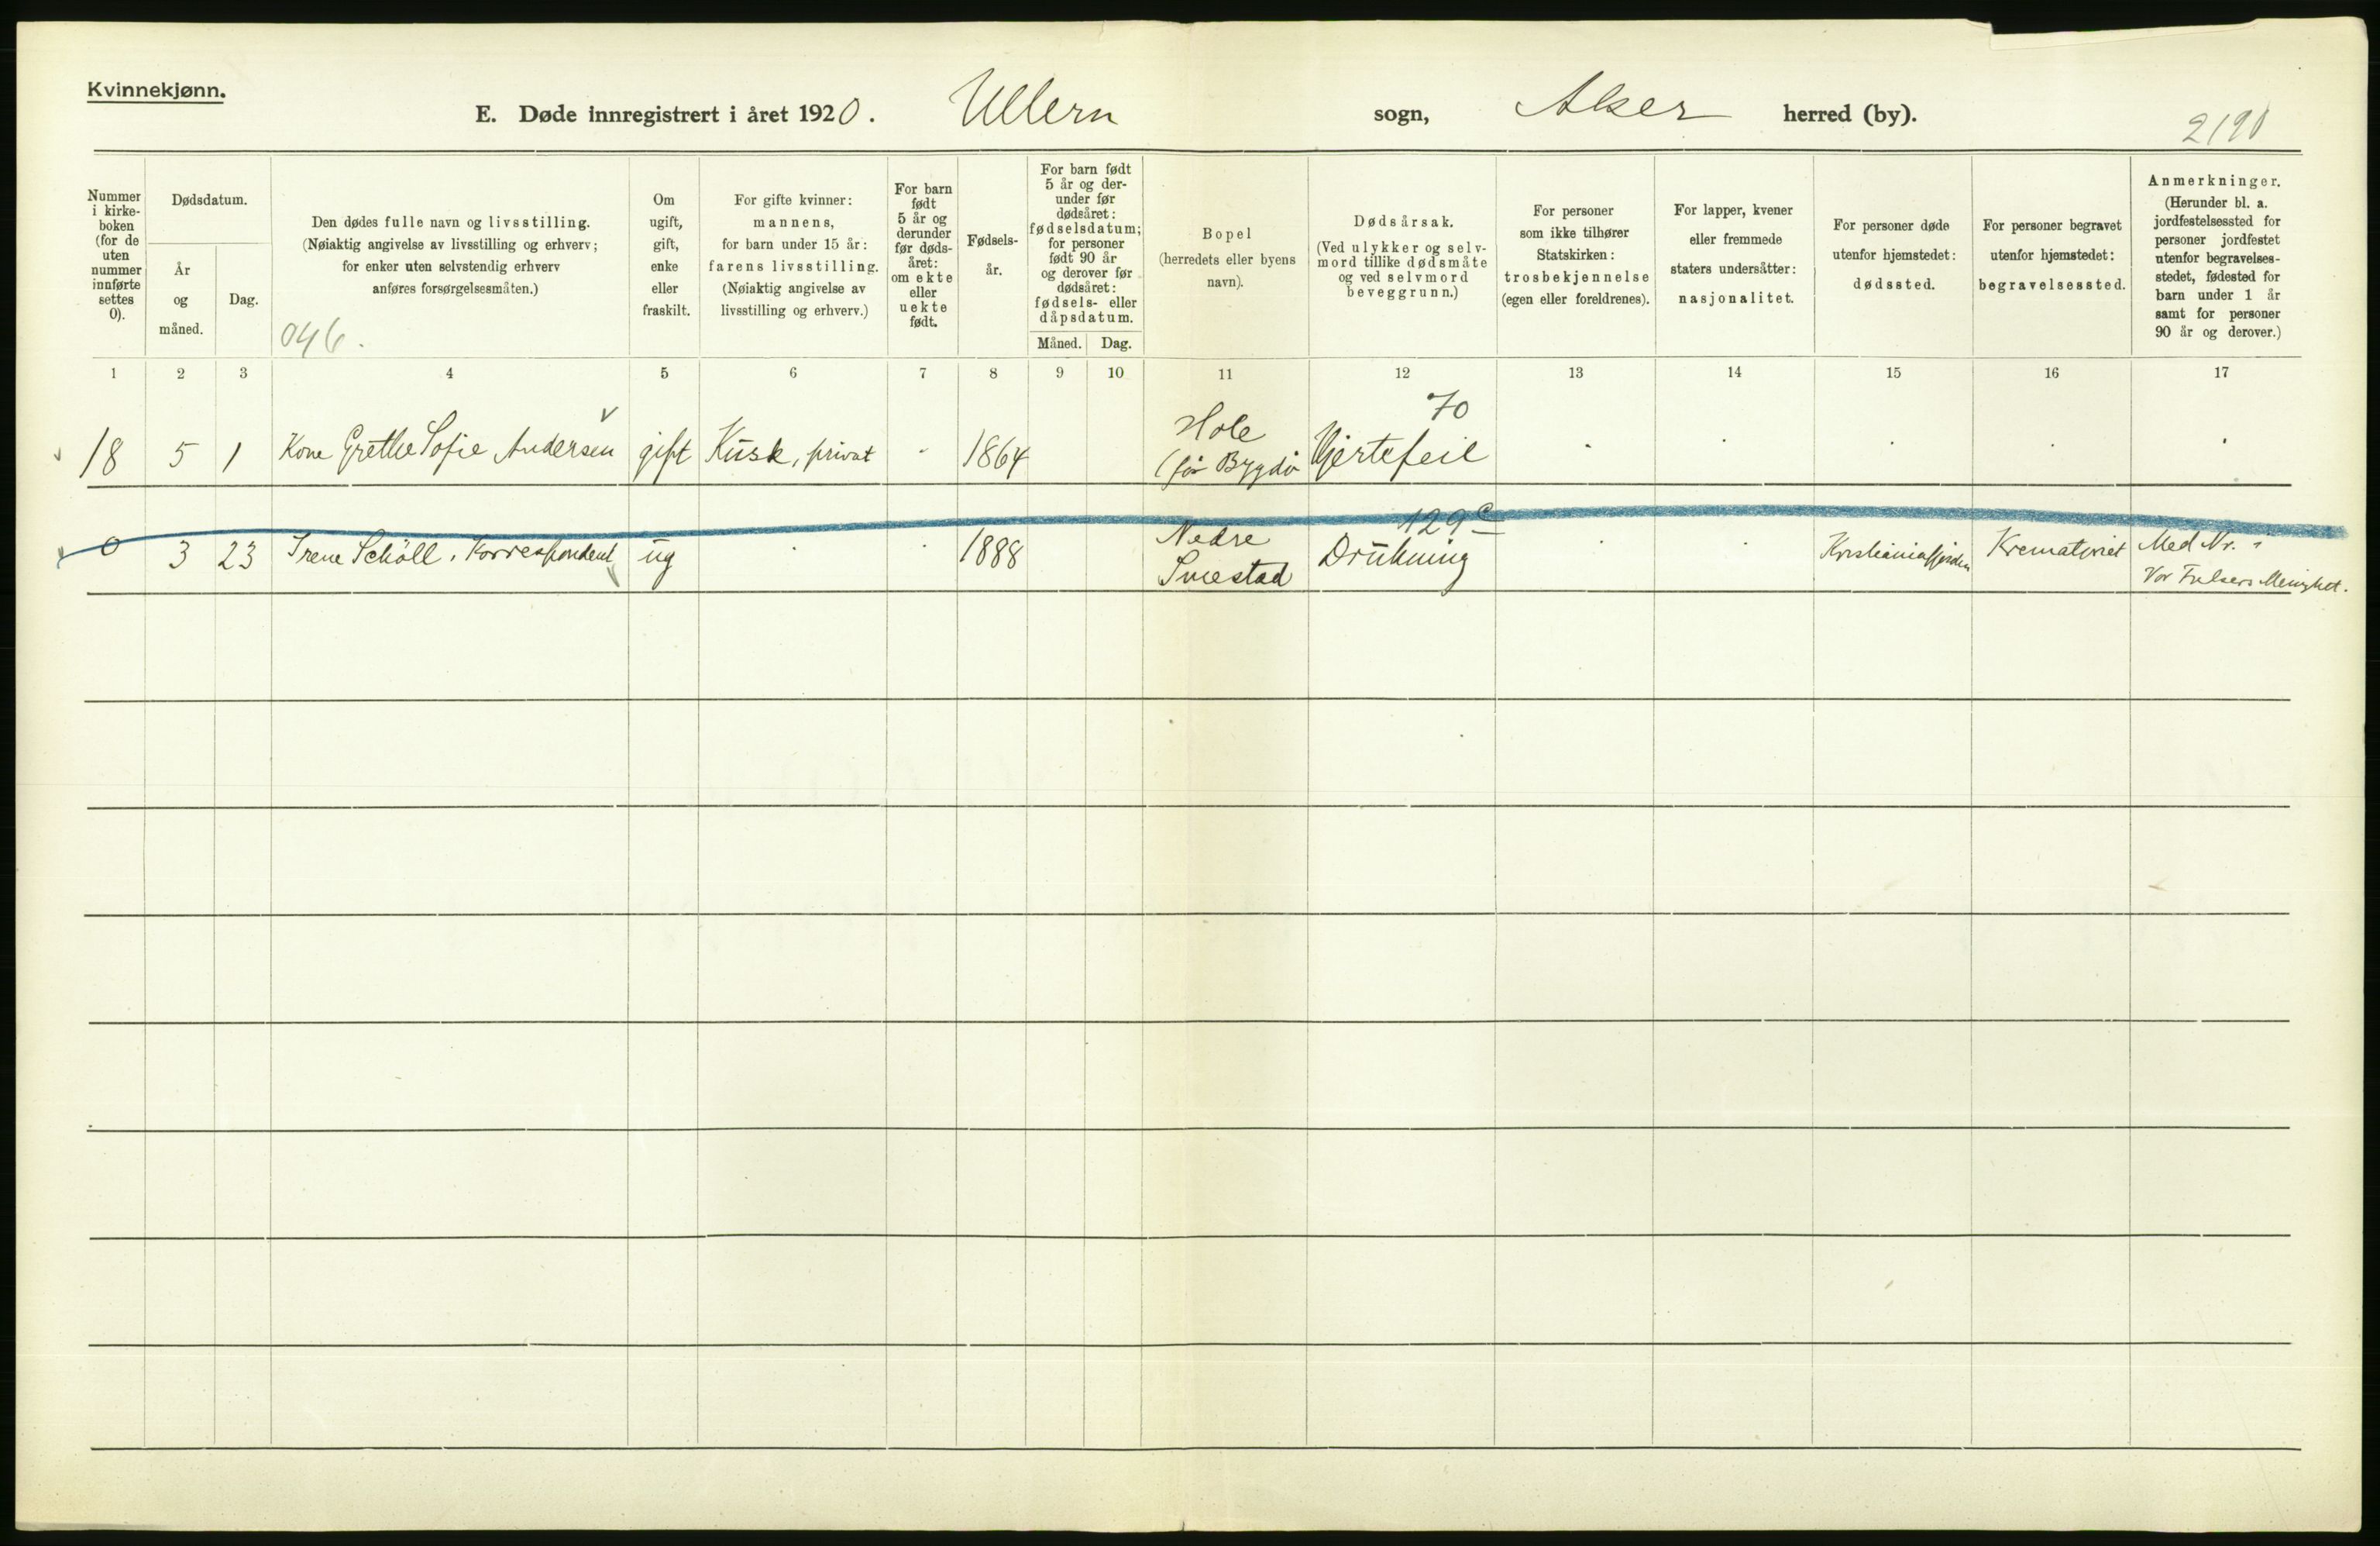 Kvinnekjønn.
E. Døde innregistrert i året 1920. Ullern sogn, Aker herred (by).
2190
Nummer i kirke- boken (for de uten nummer innførte settes 0).
Dødsdatum.
År og måned.
Dag.
Den dødes fulle navn og livsstilling.
(Nøiaktig angivelse av livsstilling og erhverv;
for enker uten selvstendig erhverv
anføres forsørgelsesmåten.)
046.
Om ugift, gift, enke eller fraskilt.
For gifte kvinner:
mannens,
for barn under 15 år:
farens livsstilling.
(Nøiaktig angivelse av
livsstilling og erhverv.)
For barn født 5 år og derunder før døds- året: om ekte eller uekte født.
Fødsels- år.
For barn født 5 år og der- under før dødsåret: fødselsdatum; for personer født 90 år og derover før dødsåret: fødsels- eller dåpsdatum.
Måned. Dag.
Bopel
(herredets eller byens
navn).
Dødsårsak.
(Ved ulykker og selv-
mord tillike dødsmåte
og ved selvmord
beveggrunn.)
For personer
som ikke tilhører
Statskirken:
trosbekjennelse
(egen eller foreldrenes).
For lapper, kvener
eller fremmede
staters undersåtter:
nasjonalitet.
For personer døde
utenfor hjemstedet:
dødssted.
For personer begravet
utenfor hjemstedet:
begravelsessted.
Anmerkninger.
(Herunder bl. a.
jordfestelsessted for
personer jordfestet
utenfor begravelses-
stedet, fødested for
barn under 1 år
samt for personer
90 år og derover.)
1 2 3 4 5 6 7 8 9 10 11 12 13 14 15 16 17
70
18 5 1 Kone Grethe Sofie Andersen gift Kusk, privat - 1864 Hole (før Bygdø Hjertefeil
129c
0 3 23 Irene Schöll, Korrespondent ug 1888 Nedre Smestad Drukning Kristianiafjorden Krematoriet Med Nr. i
Vor Frelsers Menighet.